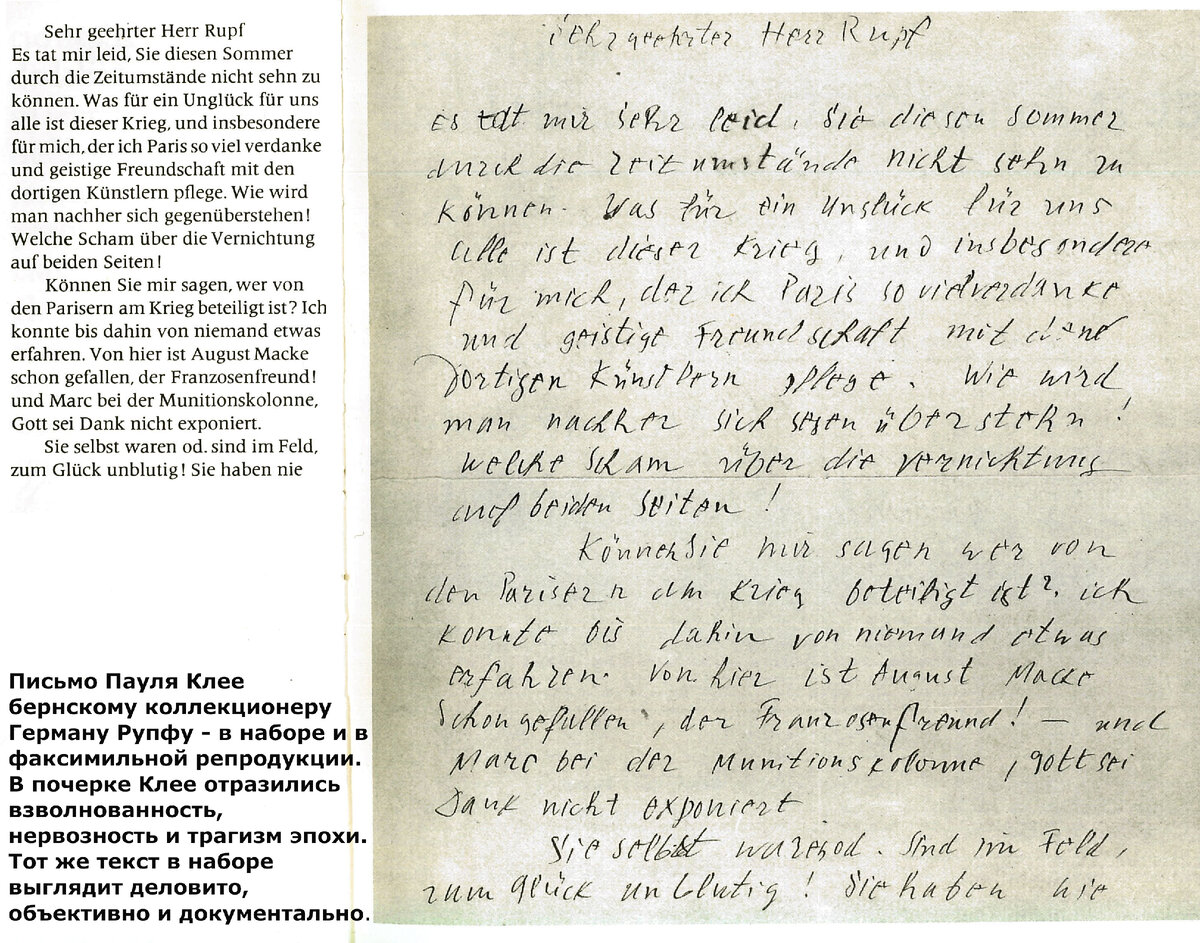 Sehr geehrter Herr Rupf
Es tat mir leid, Sie diesen Sommer
durch die Zeitumstände nicht sehn zu
können. Was für ein Unglück für uns
alle ist dieser Krieg, und insbesondere
für mich, der ich Paris so viel verdanke
und geistige Freundschaft mit den
dortigen Künstlern pflege. Wie wird
man nachher sich gegenüberstehen!
Welche Scham über die Vernichtung
auf beiden Seiten!
Können Sie mir sagen, wer von
den Parisern am Krieg beteiligt ist? Ich
konnte bis dahin von niemand etwas
erfahren. Von hier ist August Macke
schon gefallen, der Franzosenfreund!
und Marc bei der Munitionskolonne,
Gott sei Dank nicht exponiert.
Sie selbst waren od. sind im Feld,
zum Glück unblutig! Sie haben nie
Письмо Пауля Клее
бернскому коллекционеру
Герману Рупфу - в наборе и в
факсимильной репродукции.
В почерке Клее отразились
взволнованность,
нервозность и трагизм эпохи.
Тот же текст в наборе
выглядит деловито,
объективно и документально.
Sehr geehrter Herr Rupf
Es tat mir sehr leid, Sie diesen Sommer
durch die Zeitumstände nicht sehn zu
können. Was für ein Unglück für uns
alle ist dieser Krieg, und insbesondere
für mich, der ich Paris so viel verdanke
und geistige Freundschaft mit den
dortigen Künstlern pflege. Wie wird
man nachher sich gegenüberstehn!
Welche Scham über die Vernichtung
auf beiden Seiten!
Können Sie mir sagen wer von
den Parisern am Krieg beteiligt ist? ich
konnte bis dahin von niemand etwas
erfahren. Von hier ist August Macke
schon gefallen, der Franzosenfreund! — und
Marc bei der Munitionskolonne, Gott sei
Dank nicht exponiert
Sie selbst waren od. sind im Feld,
zum Glück unblutig! Sie haben nie